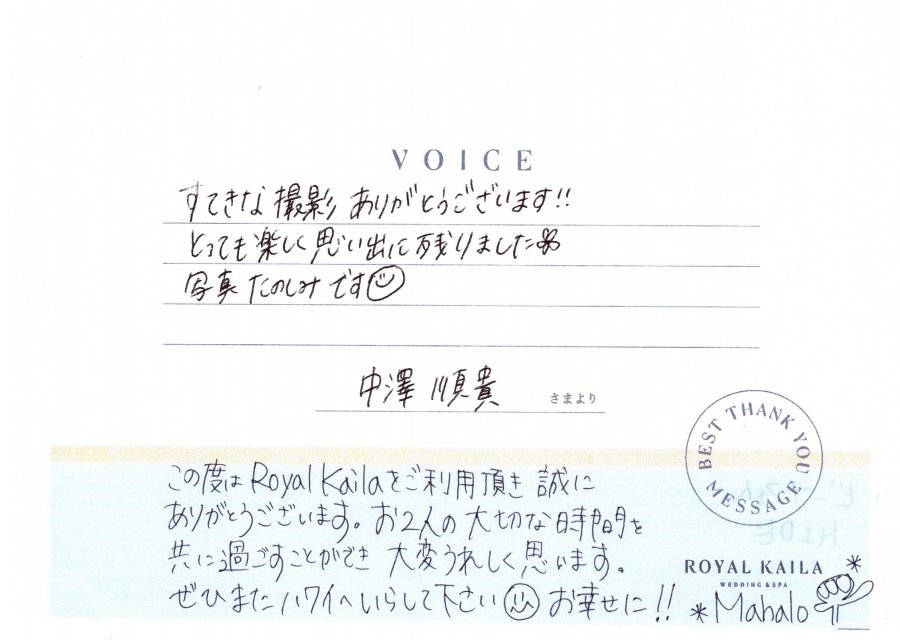 VOICE
すてきな撮影ありがとうございます!!
とっても楽しく思い出に残りました
写真たのしみです
中澤 順貴 さまより
BEST THANK YOU MESSAGE
この度はRoyal Kailaをご利用頂き誠に
ありがとうございます。お2人の大切な時間を
共に過ごすことができ 大変うれしく思います。
ぜひまたハワイへいらして下さい お幸せに!!
ROYAL KAILA
WEDDING & SPA
*Mahalo*
HIDE